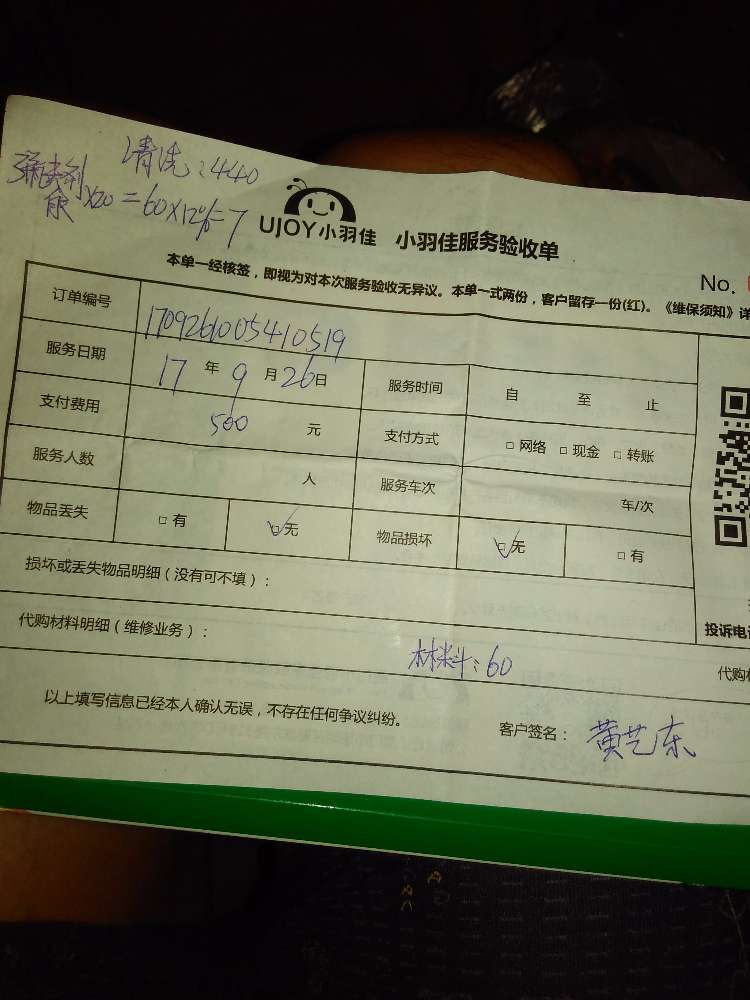 清洗:440
×20=60×12%=7
UJOY小羽佳 小羽佳服务验收单
No.
本单一经核签,即视为对本次服务验收无异议。本单一式两份,客户留存一份(红)。《维保须知》详
订单编号 1709261005410519
服务日期 17 年 9 月 26 日 服务时间 自 至 止
支付费用 500 元 支付方式 □ 网络 □ 现金 □ 转账
服务人数 人 服务车次 车/次
物品丢失 □ 有 ☑ 无 物品损坏 ☑ 无 □ 有
损坏或丢失物品明细(没有可不填):
投诉电话
代购材料明细(维修业务):
材料:60
代购材
以上填写信息已经本人确认无误,不存在任何争议纠纷。
客户签名: 黄艺东